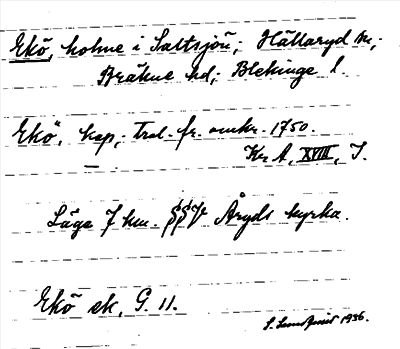 Ekö, holme i Saltsjön; Hällaryd sn;
Bräkne hd; Blekinge l.
Ekö, kap; trol. fr. omkr. 1750.
Kr A, XVIII, I.
Läge 7 km. SSV Åryds kyrka.
Ekö ek, G. 11.
S. Lundquist 1936.